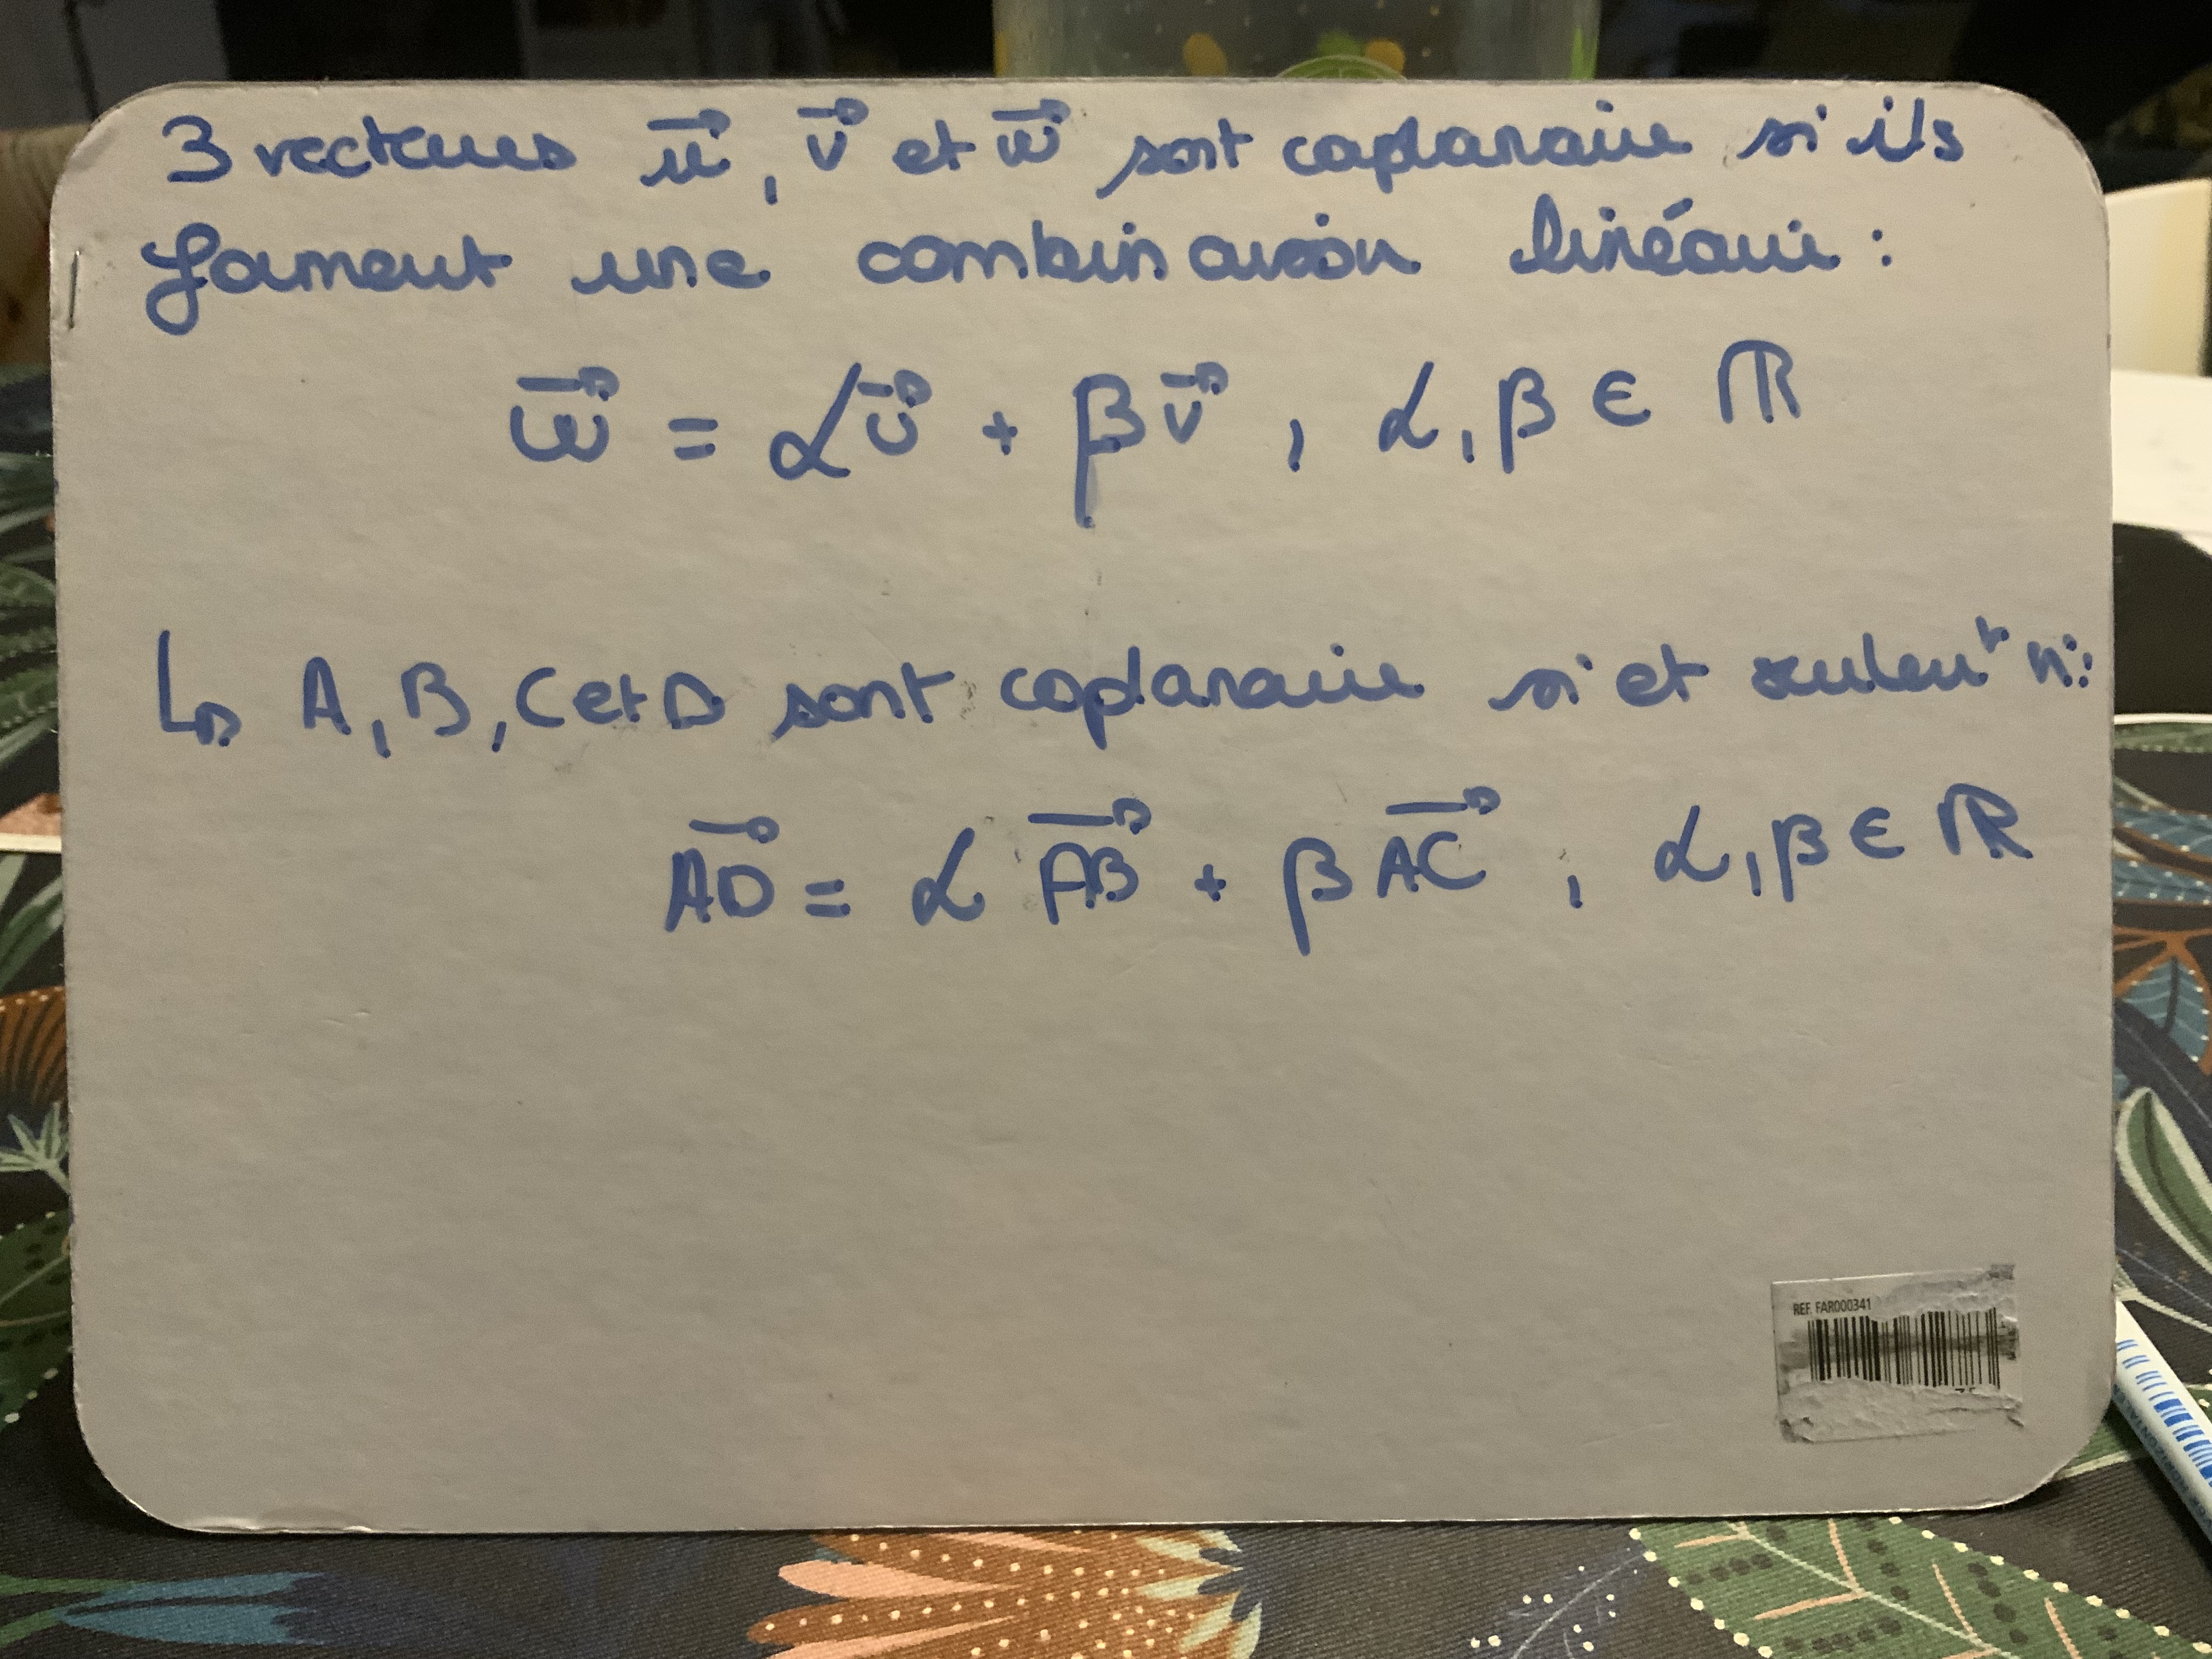 3 vecteurs u⃗, v⃗ et w⃗ sont coplanaire si ils
forment une combinaison linéaire :
w⃗ = αu⃗ + βv⃗ , α, β ∈ ℝ
↳ A, B, C et D sont coplanaire si et seulemt si :
AD⃗ = α AB⃗ + β AC⃗ , α, β ∈ ℝ
REF. FAR000341